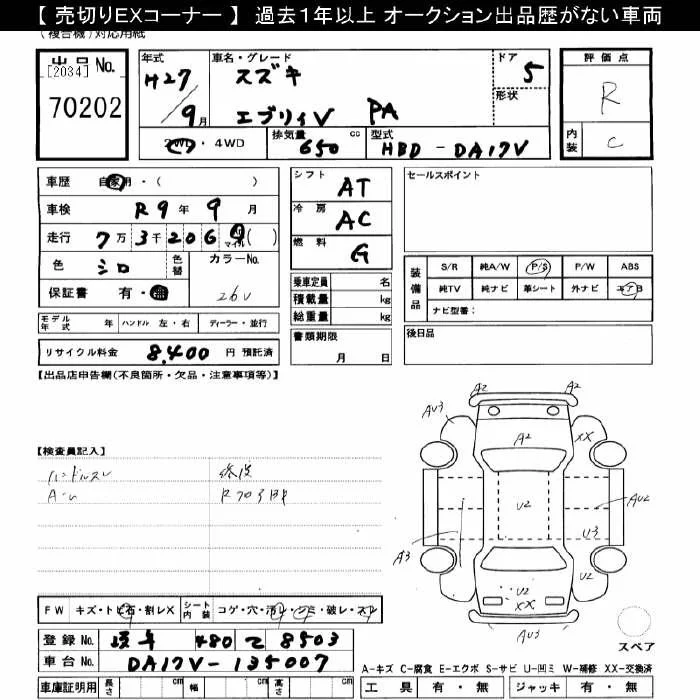 【 売切りEXコーナー 】 過去１年以上 オークション出品歴がない車両
(複合機)対応用紙
出品 No.
[2034]
70202
年式 H27/9月
車名・グレード スズキ エブリィV PA
ドア 5
形状
2WD・4WD
排気量 650 cc
型式 HBD-DA17V
評価点 R
内装 C
車歴 自家用・( )
車検 R9年9月
走行 7万3千206 マイル( )
色 シロ 色替
カラーNo. 26U
保証書 有・無
モデル年式 年 ハンドル 左・右 ディーラー・並行
リサイクル料金 8,400 円 預託済
シフト AT
冷房 AC
燃料 G
乗車定員 名
積載量 kg
総重量 kg
書類期限
月 日
セールスポイント
装備品
S/R 純A/W P/S P/W ABS
純TV 純ナビ 革シート 外ナビ エアB
ナビ型番：
後日品
【出品店申告欄(不良箇所・欠品・注意事項等)】
【検査員記入】
ハンドルスレ
FW キズ・トビ石・割レX
シート内装 コゲ・穴・汚レ・シミ・破レ・スレ
登録No. 480 て 8503
車台No. DA17V-135007
車庫証明用 長さ cm 幅 cm 高さ cm
A2 A2
AU3
A2
XX
U2
AU2
U3
A3
U2
U2
XX
AU3
スペア
A-キズ C-腐食 E-エクボ S-サビ U-凹ミ W-補修 XX-交換済
工具 有・無 ジャッキ 有・無